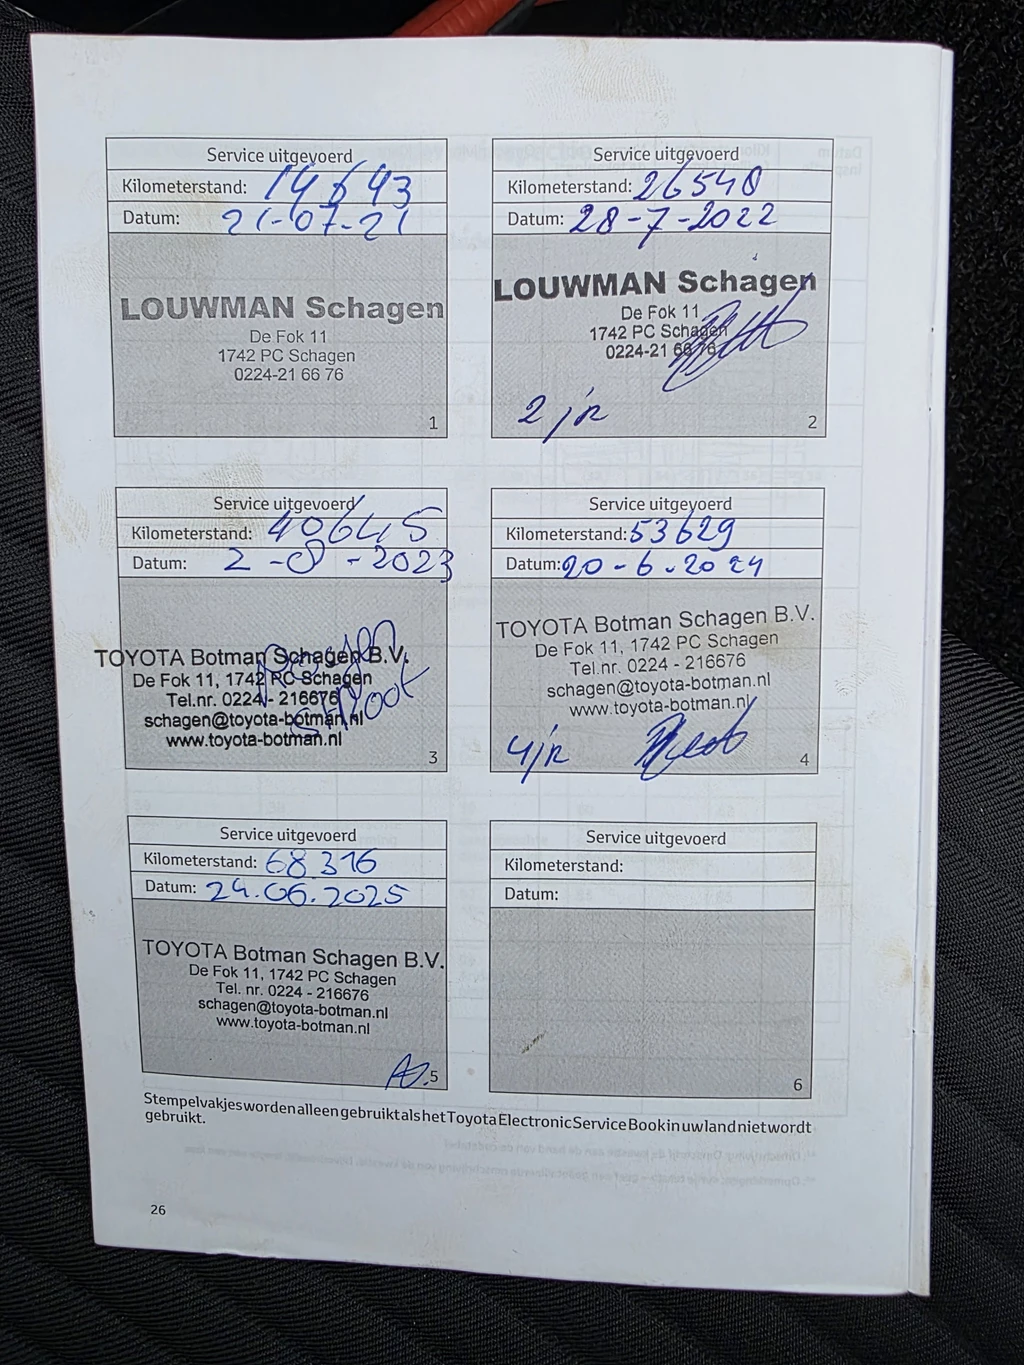 Service uitgevoerd
Kilometerstand: 14643
Datum: 21-07-21
LOUWMAN Schagen
De Fok 11
1742 PC Schagen
0224-21 66 76
1
Service uitgevoerd
Kilometerstand: 26540
Datum: 28-7-2022
LOUWMAN Schagen
De Fok 11
1742 PC Schagen
0224-21 66 76
2 jr
2
Service uitgevoerd
Kilometerstand: 40645
Datum: 2-8-2023
TOYOTA Botman Schagen B.V.
De Fok 11, 1742 PC Schagen
Tel.nr. 0224 - 216676
schagen@toyota-botman.nl
www.toyota-botman.nl
3
Service uitgevoerd
Kilometerstand: 53629
Datum: 20-6-2024
TOYOTA Botman Schagen B.V.
De Fok 11, 1742 PC Schagen
Tel.nr. 0224 - 216676
schagen@toyota-botman.nl
www.toyota-botman.nl
4jr
4
Service uitgevoerd
Kilometerstand: 68316
Datum: 24.06.2025
TOYOTA Botman Schagen B.V.
De Fok 11, 1742 PC Schagen
Tel. nr. 0224 - 216676
schagen@toyota-botman.nl
www.toyota-botman.nl
5
Service uitgevoerd
Kilometerstand:
Datum:
6
Stempelvakjes worden alleen gebruikt als het Toyota Electronic Service Book in uw land niet wordt
gebruikt.
26